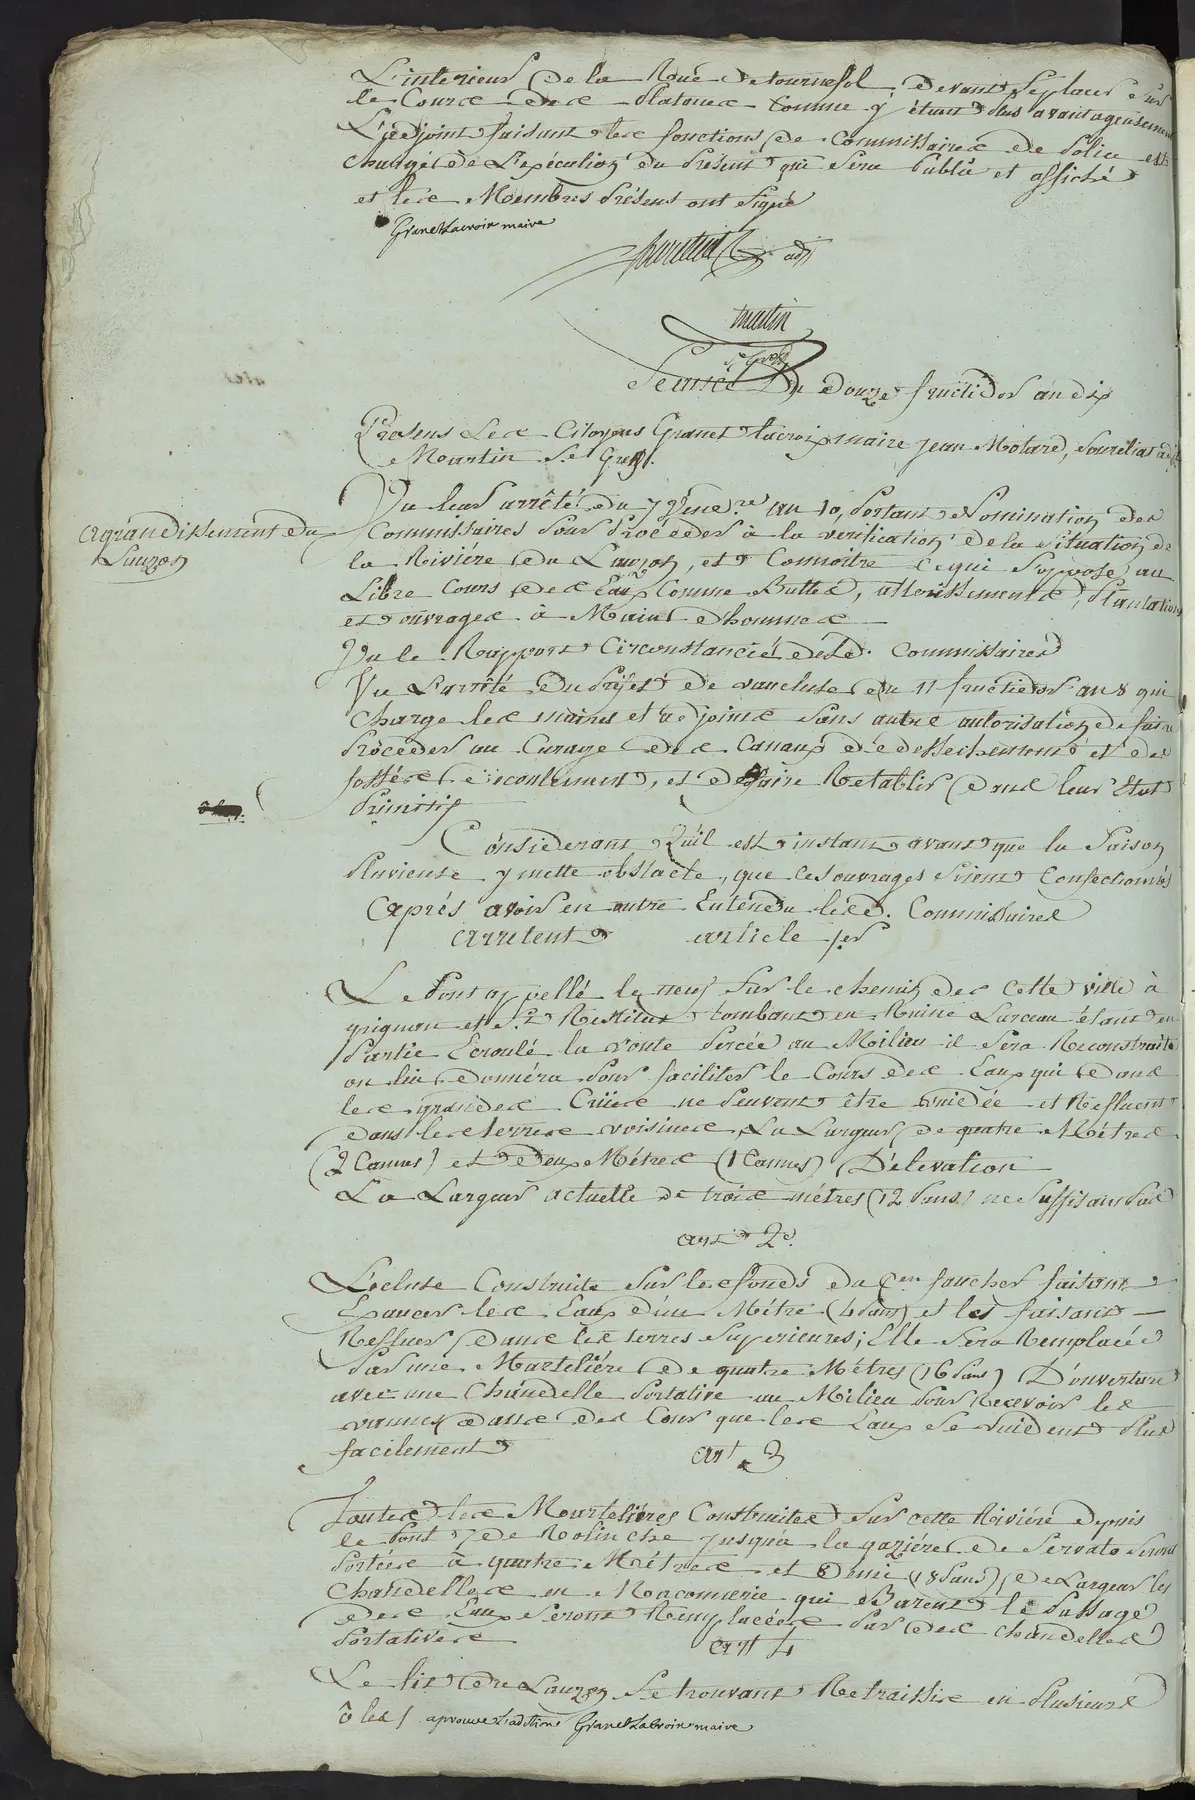 L'interieur de la Roue de tournesol, devant se placer sur
le Cours des Platanes Comme y étant plus avantageusement
L'adjoint faisant les fonctions de Commissaire de Police est
chargé de L'exécution du présent qui sera publié et affiché
et les Membres présens ont signé
Granet Lacroix maire
adj
martin
S.re Gref.
Seance Du douze fructidor an dix
Présens Les Citoyens Granet Lacroix maire jean Motard, Sourelias adj
Martin S.e Greff.
agrandissement du
Lauzon
Vu leur arrêté du 7 Vend.re an 10, portant Nomination des
Commissaires pour Procéder à la verification de la situation de
la Rivière du Lauzon, et Connoitre ce qui s'oppose au
Libre Cours des Eaux Comme Buttes, atterrissements, plantations
et ouvrages à Main d'hommes
Vu le Rapport Circonstancié desd. Commissaires
Vu L'arrêté du Préfet de vaucluse du 11 fructidor an 8 qui
Charge les maires et adjoints sans autre autorisation de faire
Procéder au Curage des Canaux de dessechement et des
fossés d'écoulement, et de faire Retablir dans leur Etat
Primitif
Considerant Qu'il est instant avant que la Saison
Pluvieuse y mette obstacle, que ces ouvrages soient Confectionnés
Après avoir en outre Entendu lesd. Commissaires
arretent article 1er
Le Pont appellé le neuf sur le chemin de cette ville à
grignan et St Restitut tombant en Ruine L'arceau étant en
Partie Ecroulé la voute Percée au Milieu il sera Reconstruit
on lui donnera pour faciliter le Cours des Eaux qui dans
les grandes Crües ne peuvent être vuidée et Refluent
dans les terres voisines, La Largeur de quatre Métres
(2 Cannes) et deux Métres (1 Cannes) D'élevation
La Largeur actuelle de trois métres (12 Pans) ne suffisant pas
art 2e.
L'écluse Construite sur les fonds du Cen faucher faisant
hausser les Eaux d'un Métre (4 Pans) et les faisant
Refluer dans les terres superieures; Elle sera Remplacée
Par une Marteliére de quatre Métres (16 Pans) D'ouverture
avec une Chandelle portative au Milieu pour Recevoir les
vannes dans des Cour que les Eaux se vuident plus
facilement
art 3
Toutes les Marteliéres Construites sur cette Riviére depuis
le Pont de Rolinche jusqu'à la gaziére de Servato seront
Portées à quatre Métres et Demi (18 Pans) de Largeur les
Chandelles en Maçonnerie qui Barent le Passage
des Eaux seront Remplacées Par des chandelles
Portatives
art 4
Le lit de Lauzon se trouvant Retraissie en Plusieurs
ô les / aprouve Ladition Granet Lacroix maire